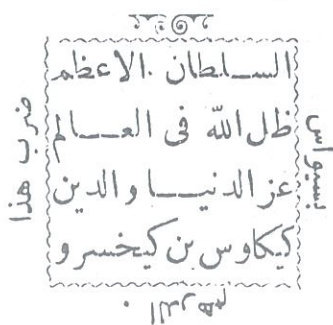 السلطان الاعظم
ظل الله فى العالم
عز الدنيا والدين
كيكاوس بن كيخسرو
ضرب هذا
الدرهم
بسيواس